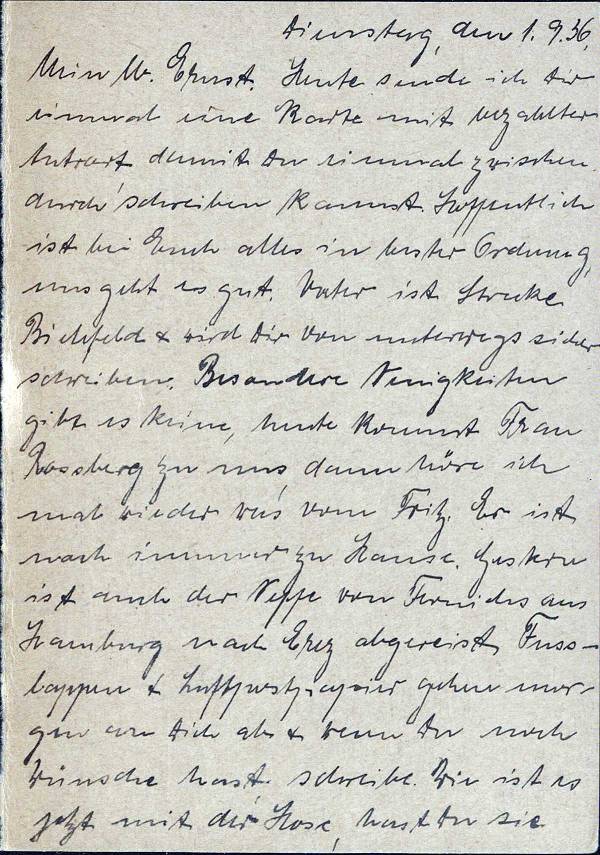 Dienstag, den 1. 9. 36.
Mein lb. Ernst. Heute sende ich Dir
einmal eine Karte mit bezahlter
Antwort damit Du einmal zwischen
durch schreiben kannst. Hoffentlich
ist bei Euch alles in bester Ordnung,
uns geht es gut. Vater ist Strecke
Bielefeld & wird Dir von unterwegs sicher
schreiben. Besondere Neuigkeiten
gibt es keine, heute kommt Frau
Rossberg zu uns, dann höre ich
mal wieder was vom Fritz. Er ist
noch immer zu Hause. Gestern
ist auch der Neffe von aus
Hamburg nach Erez abgereist. Fuss-
lappen & Luftpostpapier gehen mor-
gen an Dich ab & wenn Du noch
Wünsche hast, schreibe. Wie ist es
jetzt mit der Hose, hast Du sie